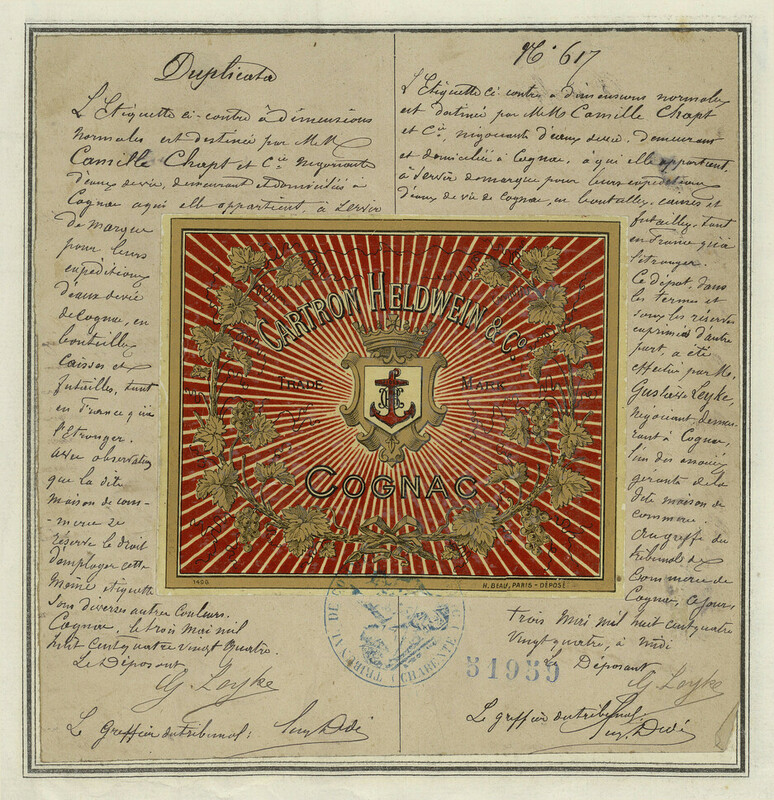 Duplicata
L'Etiquette ci-contre à dimensions
normales est destinée par MM.
Camille Chapt et Cie négociants
d'eaux de vie, demeurant et domiciliés à
Cognac à qui elle appartient, à servir
de marque
pour leurs
expéditions
d'eaux de vie
de Cognac, en
bouteilles
caisses et
futailles, tant
en France qu'à
l'étranger.
Avec observation
que la dite
maison de com-
-merce se
réserve le droit
d'employer cette
même étiquette
sous diverses autres couleurs.
Cognac, le trois mai mil
huit cent quatre vingt quatre.
Le Déposant
G. Leyke
Le Greffier du tribunal:
No 617
L'Etiquette ci-contre à dimensions normales
est destinée par MM. Camille Chapt
et Cie, négociants d'eaux de vie, demeurant
et domiciliés à Cognac, à qui elle appartient,
à servir de marque pour leurs expéditions
d'eaux de vie de Cognac, en bouteilles, caisses et
futailles, tant
en France qu'à
l'étranger.
Ce dépôt, dans
les termes et
sous les réserves
exprimées d'autre
part, a été
effectué par M.
Gustave Leyke,
négociant, demeu-
rant à Cognac,
l'un des associés
gérants de la
dite maison de
commerce
au greffe du
tribunal de
Commerce de
Cognac, ce jour,
trois mai mil huit cent quatre
vingt quatre, à midi
Le Déposant
G. Leyke
Le greffier du tribunal:
CARTRON HELDWEIN & Co.
TRADE MARK
COGNAC
1409
H. BEAU, PARIS - DÉPOSÉ
TRIBUNAL DE CO
(CHARENTE)
51959